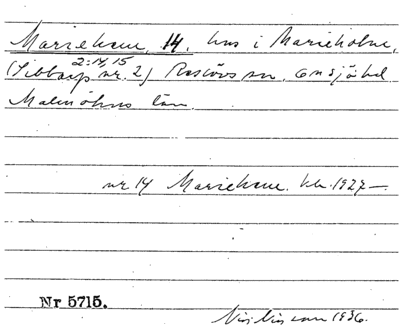 Mariehem, 14, hus i Marieholm,
2:14,15
(Sibbarp nr. 2) sn. Onsjö hd
Malmöhus län.
nr 14 Mariehem. kh. 1927—
Nr 5715.
1936.